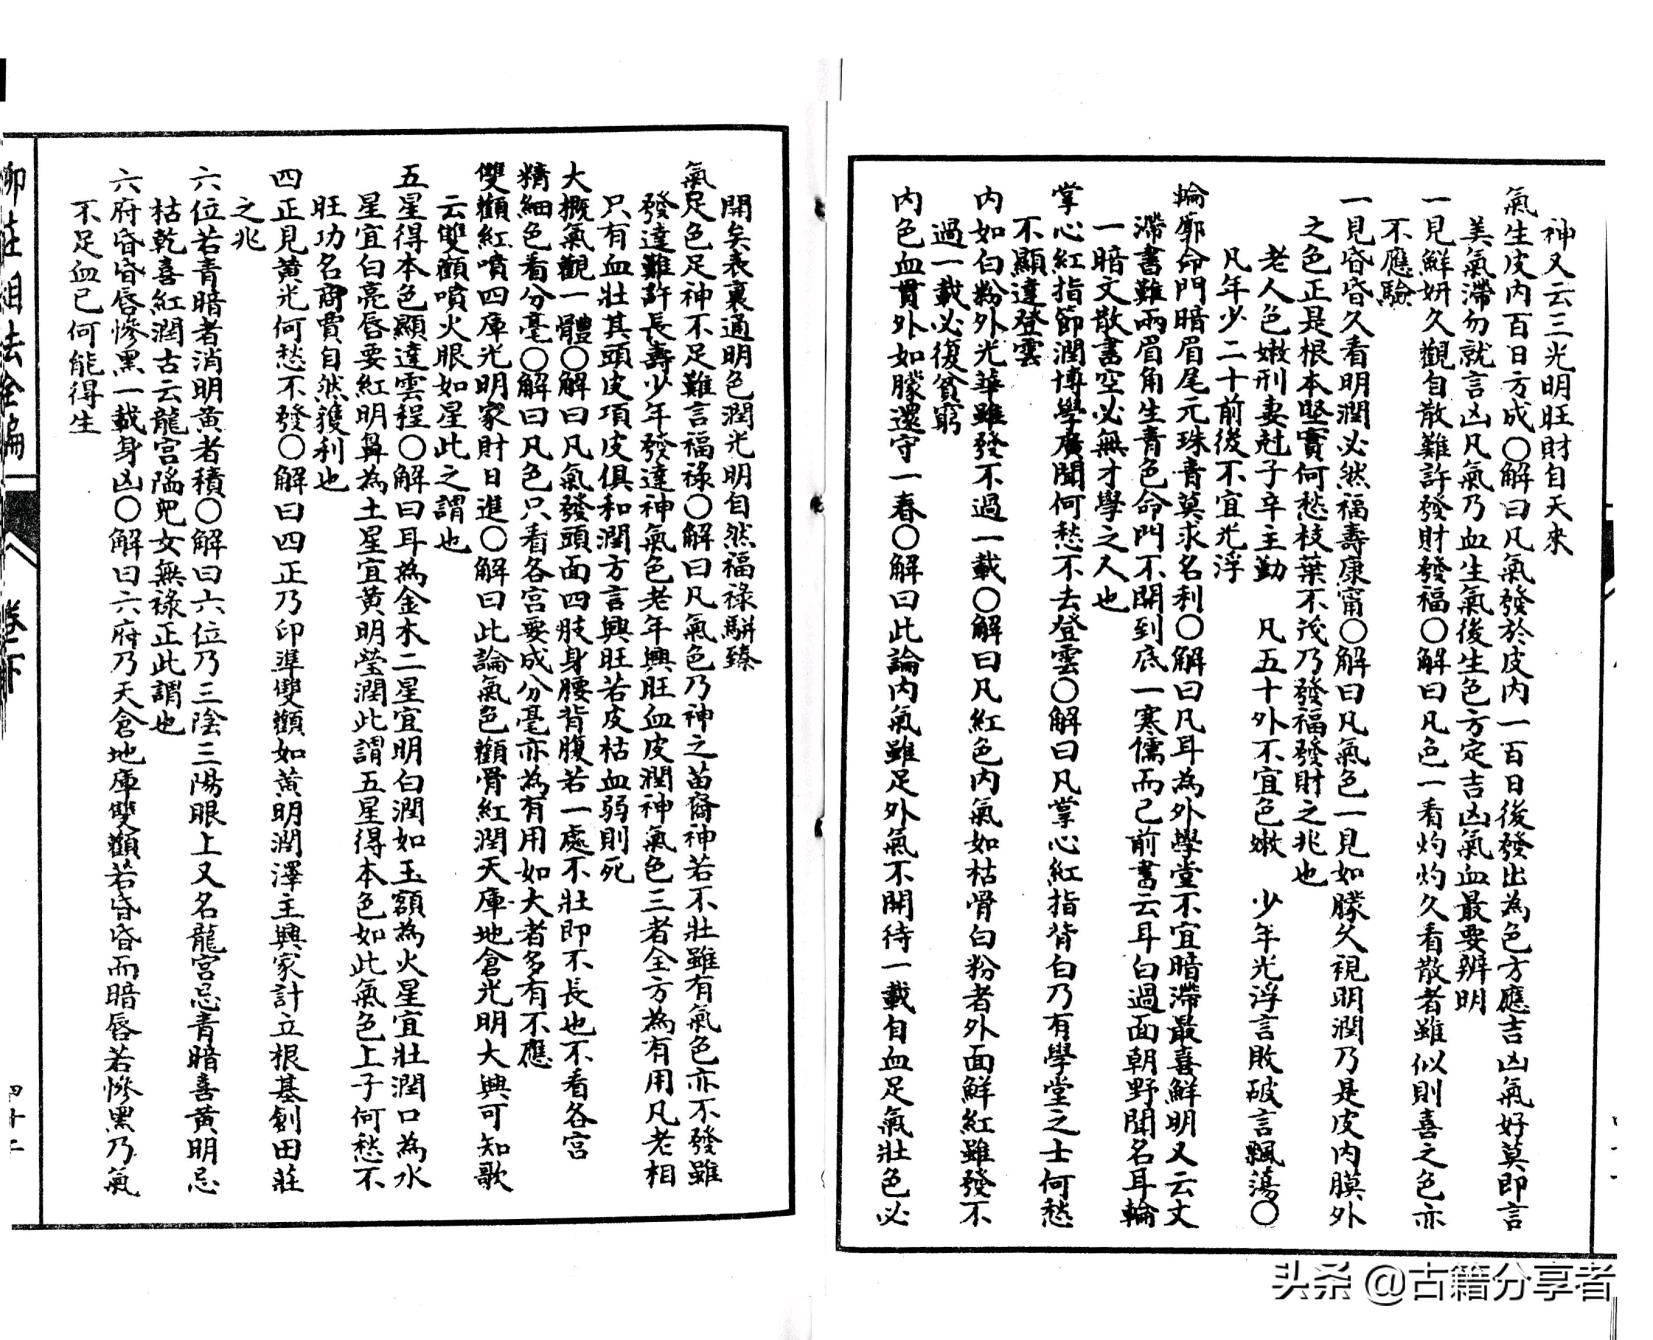 神又云三光明旺財自天來
氣生皮內百日方成〇解曰凡氣發於皮內一百日後發出為色方應吉凶氣好莫即言
美氣滯勿就言凶凡氣乃血生氣後生色方定吉凶氣血最要辨明
一見鮮妍久觀自散難許發財發福〇解曰凡色一看灼灼久看散者雖似則喜之色亦
不應驗
一見昏昏久看明潤必然福壽康甯〇解曰凡氣色一見如朦久視明潤乃是皮內膜外
之色正是根本堅實何愁枝葉不茂乃發福發財之兆也
老人色嫩刑妻尅子辛主勤 凡五十外不宜色嫩 少年光浮言敗破言飄蕩〇
凡年少二十前後不宜光浮
輪廓命門暗眉尾元珠青莫求名利〇解曰凡耳為外學堂不宜暗滯最喜鮮明又云文
滯書難兩眉角生青色命門不開到底一寒儒而已前書云耳白過面朝野聞名耳輪
一暗文散書空必無才學之人也
掌心紅指節潤博學廣聞何愁不去登雲〇解曰凡掌心紅指背白乃有學堂之士何愁
不顯達登雲
內如白粉外光華雖發不過一載〇解曰凡紅色內氣如枯骨白粉者外面鮮紅雖發不
過一載必復貧窮
內色血貫外如朦還守一春〇解曰此論內氣雖足外氣不開待一載自血足氣壯色必
開矣表裏通明色潤光明自然福祿駢臻
氣足色足神不足難言福祿〇解曰凡氣色乃神之苗裔神若不壯雖有氣色亦不發雖
發達難許長壽少年發達神氣色老年興旺血皮潤神氣色三者全方為有用凡老相
只有血壯其頭皮項皮俱和潤方言興旺若皮枯血弱則死
大概氣觀一體〇解曰凡氣發頭面四肢身腰背腹若一處不壯即不長也不看各宮
精細色看分毫〇解曰凡色只看各宮要成分毫亦為有用如大者多有不應
雙顴紅噴四庫光明家財日進〇解曰此論氣色顴骨紅潤天庫地倉光明大興可知歌
云雙顴噴火眼如星此之謂也
五星得本色顯達雲程〇解曰耳為金木二星宜明白潤如玉額為火星宜壯潤口為水
星宜白亮唇要紅明鼻為土星宜黃明瑩潤此謂五星得本色如此氣色上子何愁不
旺功名商賈自然獲利也
四正見黃光何愁不發〇解曰四正乃印準雙顴如黃明潤澤主興家計立根基創田莊
之兆
六位若青暗者消明黃者積〇解曰六位乃三陰三陽眼上又名龍宮忌青暗喜黃明忌
枯乾喜紅潤古云龍宮陷兒女無祿正此謂也
六府昏昏唇慘黑一載身凶〇解曰六府乃天倉地庫雙顴若昏昏而暗唇若慘黑乃氣
不足血已何能得生
柳莊相法全編
卷下
四十二
头条 @古籍分享者